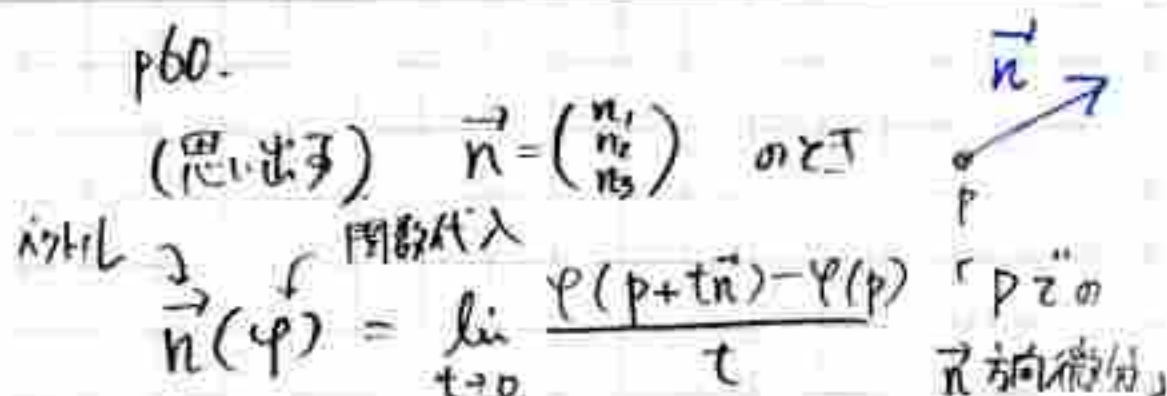 p60.
(思い出す) $\vec{n} = \begin{pmatrix} n_1 \\ n_2 \\ n_3 \end{pmatrix}$ のとき
ベクトル 関数代入
$\vec{n}(\varphi) = \lim_{t \to 0} \frac{\varphi(p+t\vec{n})-\varphi(p)}{t}$
$\vec{n}$
p
「pでの
$\vec{n}$方向微分」